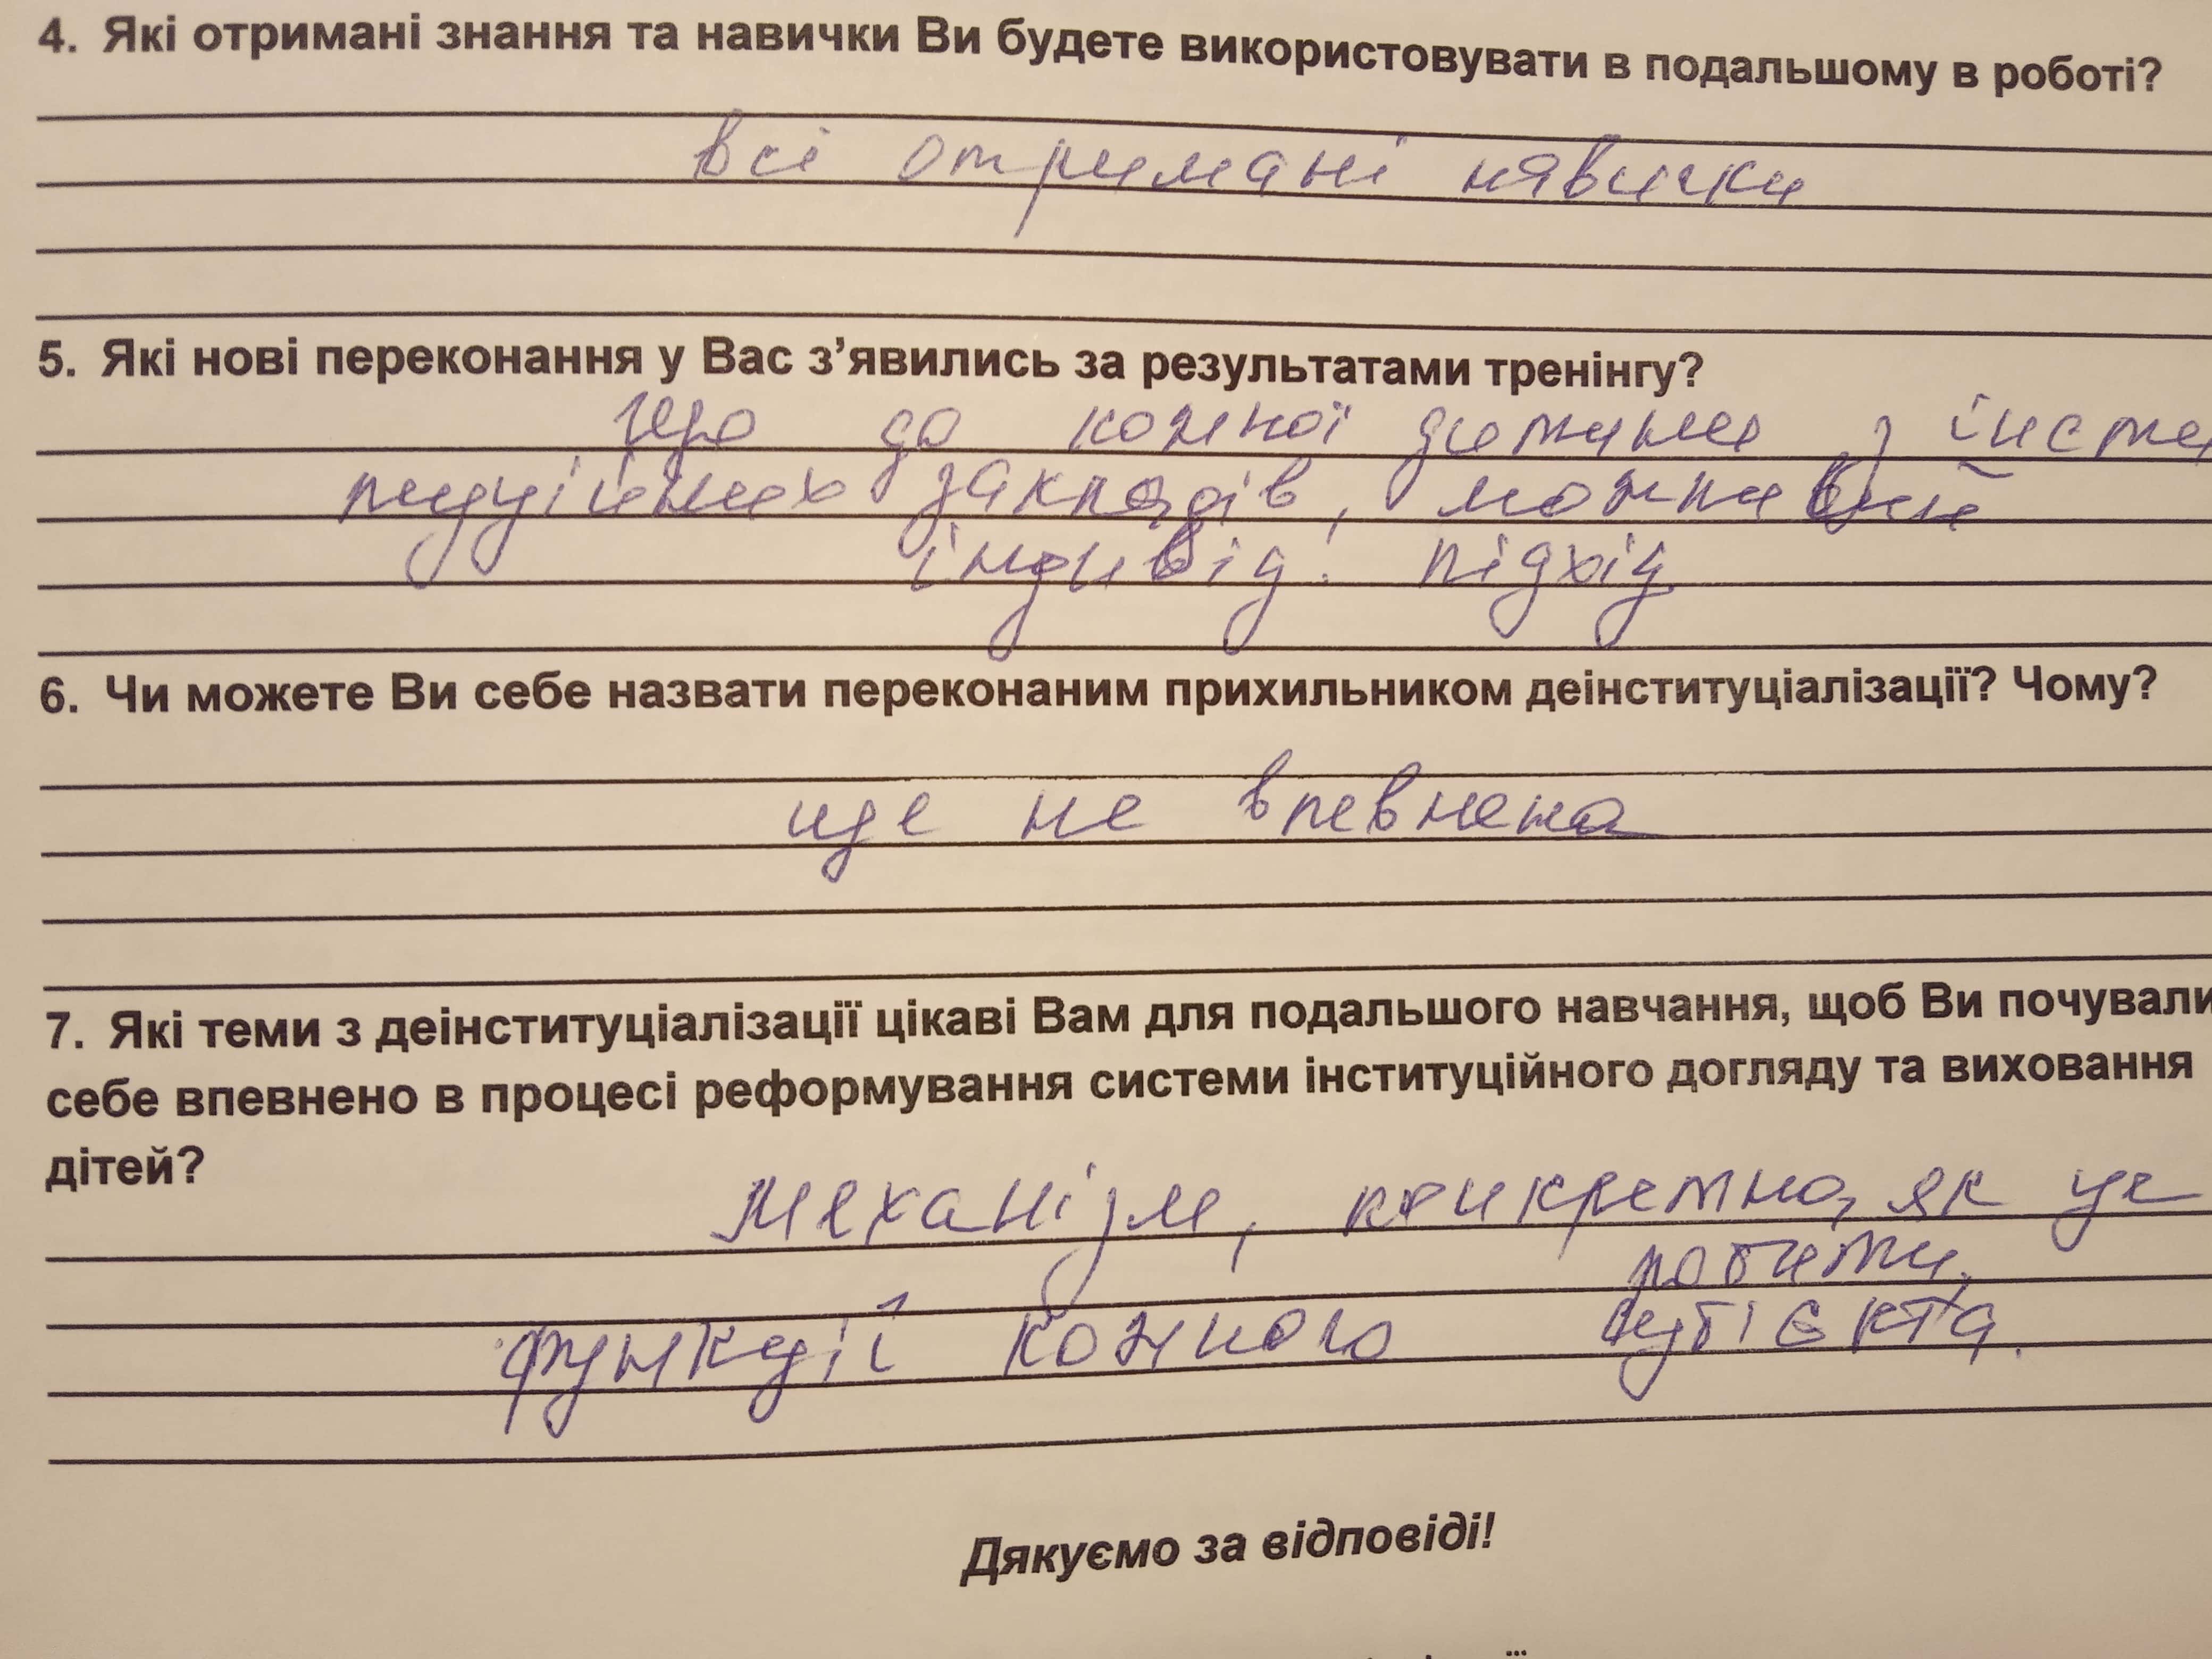 4. Які отримані знання та навички Ви будете використовувати в подальшому в роботі?
всі отримані навички
5. Які нові переконання у Вас з’явились за результатами тренінгу?
що до кожної дитини з інсти
туційних закладів, можливий
індивід. підхід
6. Чи можете Ви себе назвати переконаним прихильником деінституціалізації? Чому?
ще не впевнена
7. Які теми з деінституціалізації цікаві Вам для подальшого навчання, щоб Ви почували
себе впевнено в процесі реформування системи інституційного догляду та виховання
дітей?
механізм, конкретно, як це
робити,
функції кожного суб'єкта.
Дякуємо за відповіді!